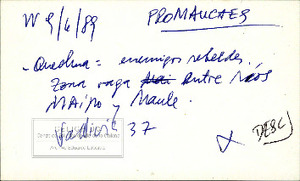 W 9/6/89 PROMAUCAES
- Quechua = enemigos rebeldes.
Zona vaga entre Ríos
MAIPO y Maule.
37
DESC